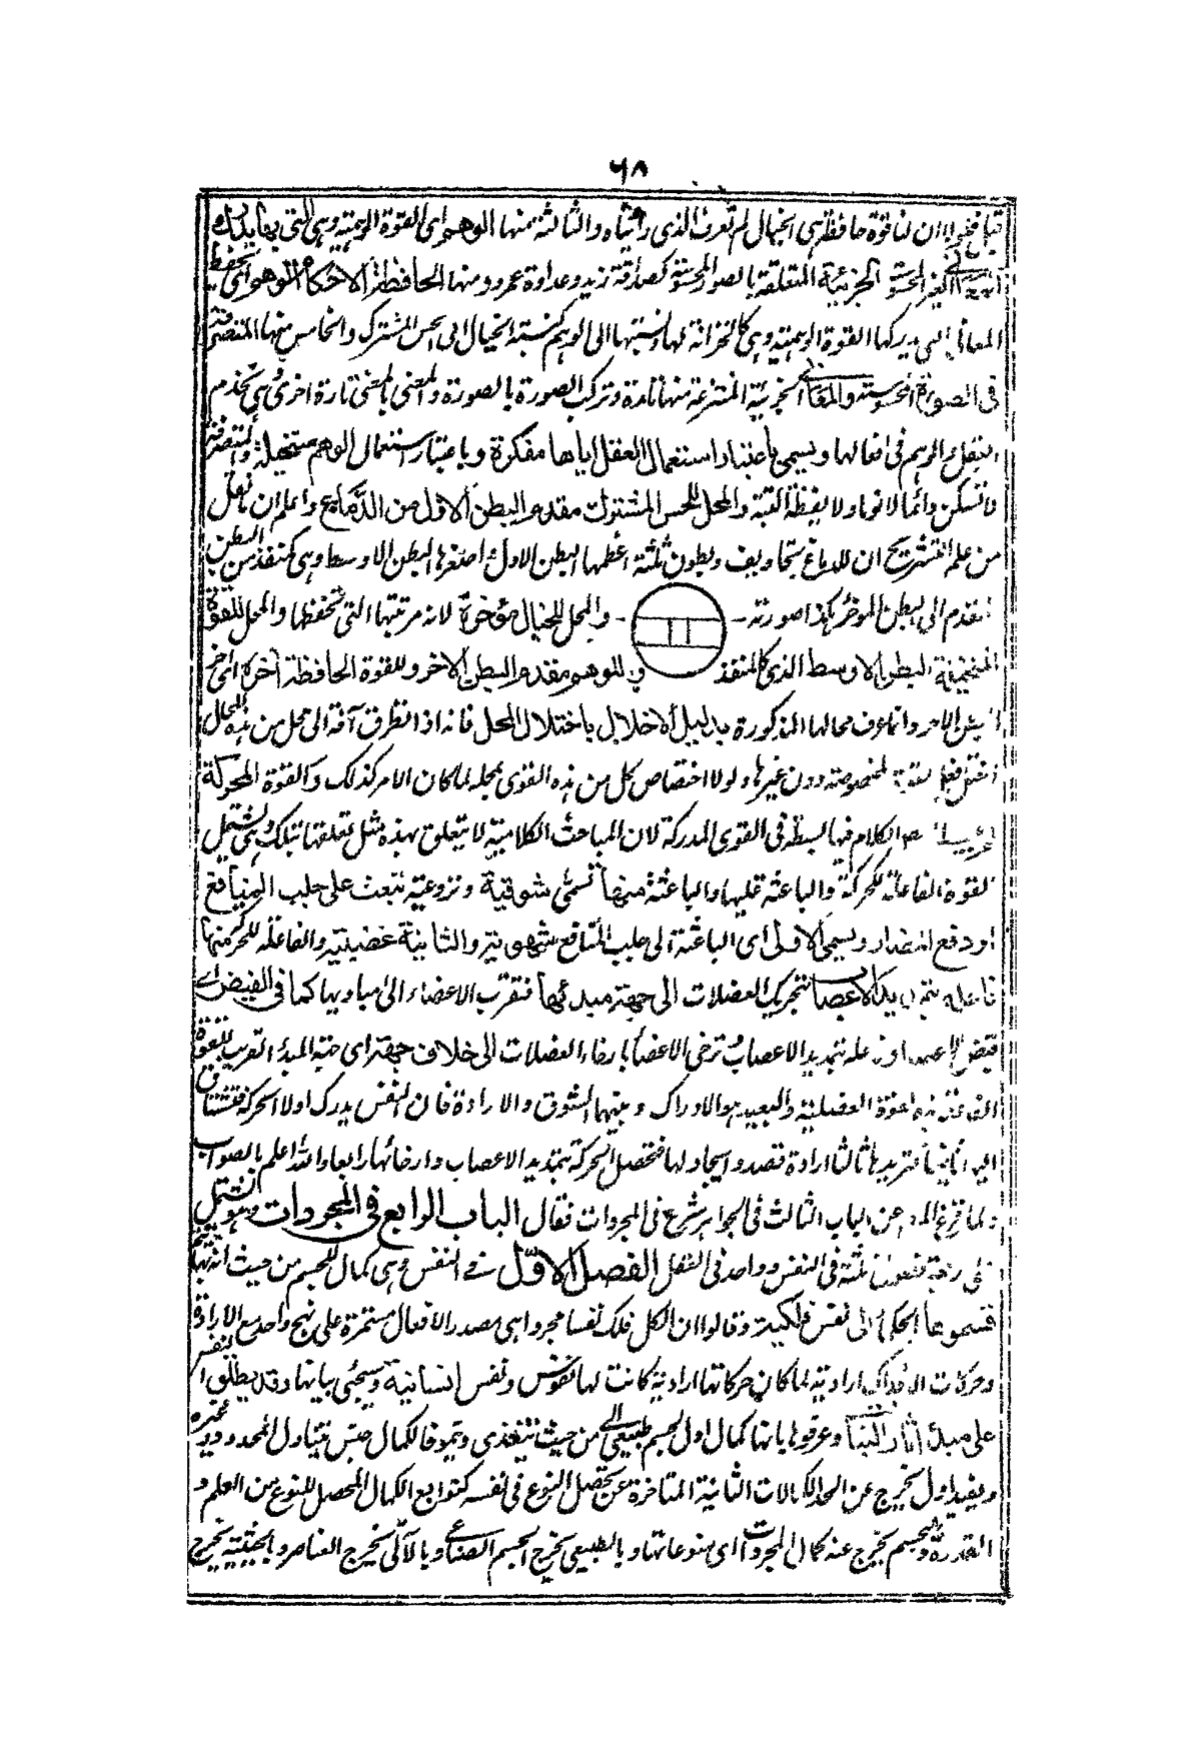 ٦٨
قوة حافظة هى الخيال لم تعرف الذى رأيناه والثالثة منها الوهم اى القوة الوهمية وهى التى بها يدرك
الغير المحسوسة الجزئية المتعلقة بالصور المحسوسة كصداقة زيد وعداوة عمرو ومنها الحافظة لاحكام الوهم اى تحفظ
المعانى التى يدركها القوة الوهمية وهى كالخزانة لها ونسبتها الى الوهم كنسبة الخيال الى الحس المشترك والخامس منها المتصرفة
فى الصورة المحسوسة والمعانى الجزئية المنتزعة منها تارة وتركب الصورة بالصورة والمعنى بالمعنى تارة اخرى هى تخدم
العقل والوهم فى افعالها ويسمى باعتبار استعمال العقل اياها مفكرة وباعتبار استعمال الوهم متخيلة والمتصرفة
لا تسكن دائما لا نوما ولا يقظة البتة والمحل للحس المشترك مقدم البطن الاول من الدماغ واعلم ان
من علم التشريح ان للدماغ تجاويف وبطون ثلثة اعظمها البطن الاول واصغرها البطن الاوسط وهى كمنفذ من البطن
المقدم الى البطن الموخر هكذا صورته - والمحل للخيال مؤخرة لانه مرتبتها التى تحفظها والمحل للقوة
البطن الاوسط الذى كالمنفذ وللوهم مقدم البطن الاخر وللقوة الحافظة آخره اى آخر
البطن الاخر وانما عرف محالها المذكورة بدليل الاختلال باختلال المحل فانه اذا تطرق آفة الى محل من هذه المحال
دون غيرها ولولا اختصاص كل من هذه القوى بمحله لما كان الامر كذلك والقوة المحركة
الكلام فيها لبسطه فى القوى المدركة لان المباحث الكلامية لا يتعلق بهذه مثل تعلقها بتلك وهى يشتمل
القوة الفاعلة للحركة والباعثة عليها والباعثة منها تسمى شوقية ونزوعية تبعث على جلب المنافع
او دفع المضار ويسمى الاولى اى الباعثة الى جلب المنافع شهوية والثانية غضبية والفاعلة للحركة منها
بتمديد الاعصاب بتحريك العضلات الى جهة مبدئها فتقرب الاعضاء الى مباديها كما فى القبض اى
قبض الاعصاب بتمديد الاعصاب ترخى الاعضاء بارخاء العضلات الى خلاف جهة اى جهة المبدأ القريب للقوة
القوة العضلية والبعيد هو الادراك وبينهما الشوق والارادة فان النفس يدرك اولا الحركة فتشتاق
اليها ثانيا فتريدها ثالثا ارادة قصد وايجاد لها فتحصل الحركة بتمديد الاعصاب وارخائها رابعا والله اعلم بالصواب
ولما فرغ عن الباب الثالث فى الجواهر شرع فى المجردات فقال الباب الرابع فى المجردات وهو يشتمل
ثلثة فى النفس وواحد فى العقل الفصل الاول فى النفس وهى كمال للجسم من حيث
الى نفس فلكية وقالوا ان لكل فلك نفسا مجردا هى مصدر الافعال مستمرة على نهج واحد مع الارادة
وحركات الافلاك ارادية لما كان حركاتها ارادية كانت لها نفوس ونفس انسانية وسيجئى بيانها وقد يطلق النفس
على مبدأ آثار النبات وعرفوها بانها كمال اول لجسم طبيعى آلى من حيث يتغذى وينمو فالكمال جنس يتناول المحدود وغيره
وبقيد اول يخرج عن الحد الكمالات الثانية المتاخرة عن تحصل النوع فى نفسه كتوابع الكمال المحصل للنوع من العلم و
القدرة وبالجسم يخرج عنه كمال المجردات اى منوعاتها وبالطبيعى يخرج الجسم الصناعى وبالآلى يخرج العناصر وبالحيثية يخرج